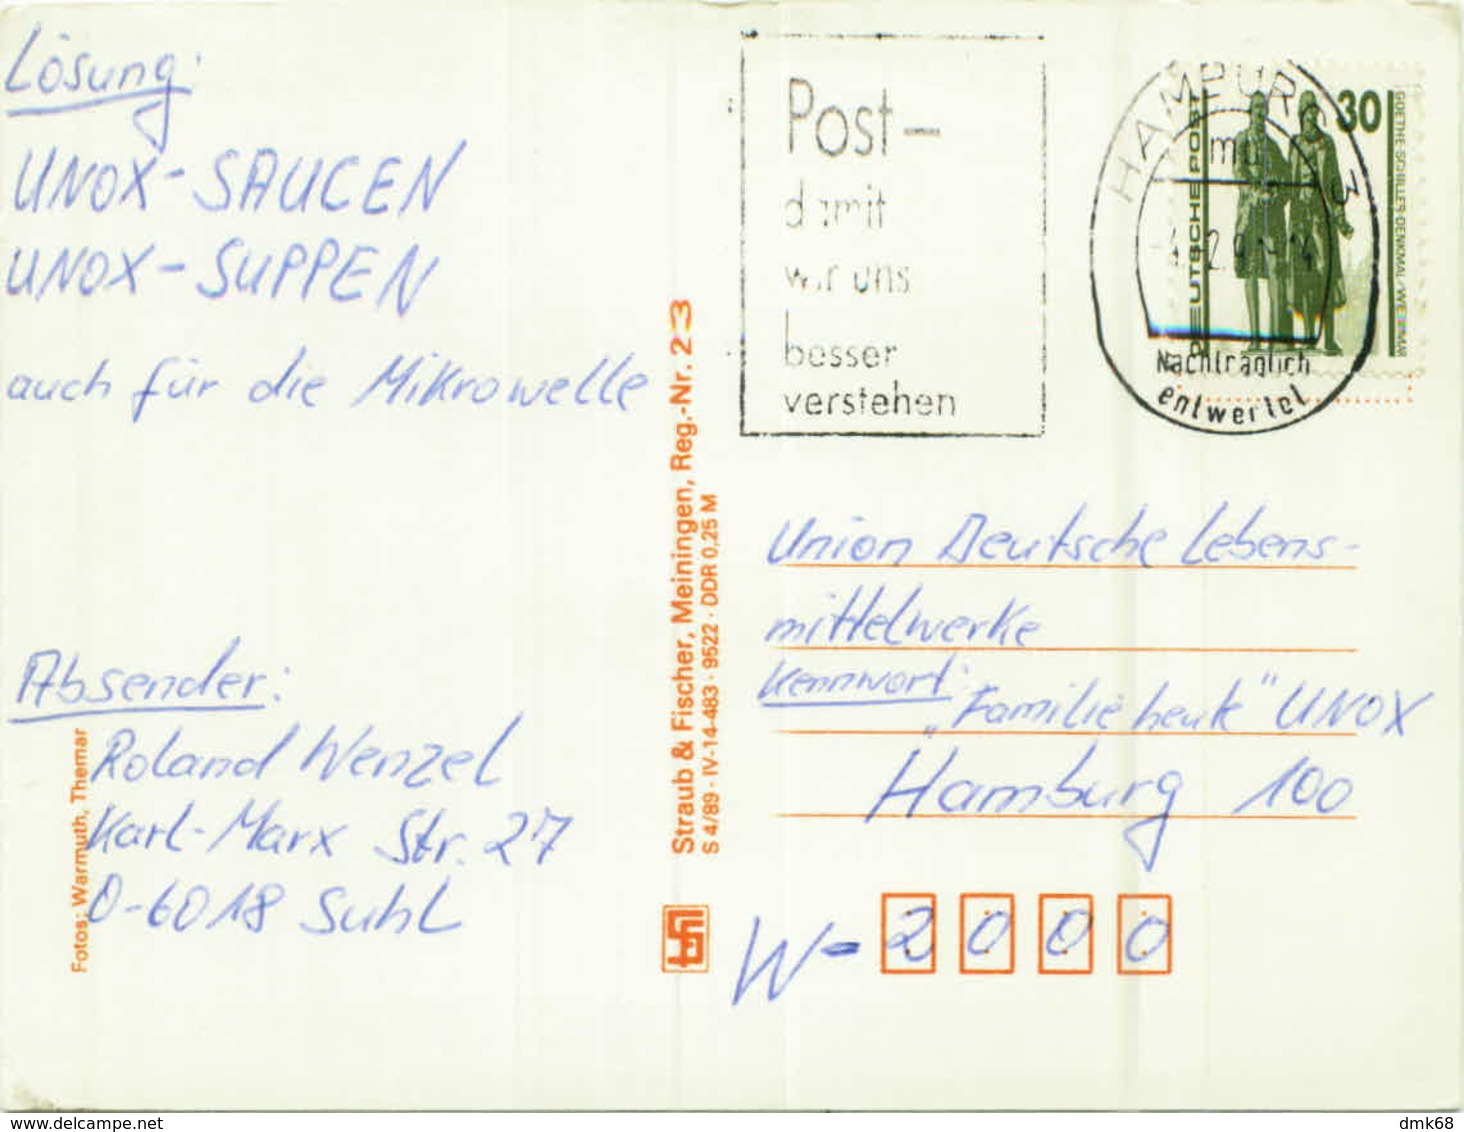 Lösung:
UNOX-SAUCEN
UNOX-SUPPEN
auch für die Mikrowelle
Absender:
Roland Wenzel
Karl-Marx Str. 27
O-6018 Suhl
Fotos: Warmuth, Themar
Straub & Fischer, Meiningen, Reg.-Nr. 23
S 4/89 · IV-14-483 · 9522 · DDR 0,25 M
Post-
damit
wir uns
besser
verstehen
HAMBURG
3
mu
Nachträglich
entwertet
30
DEUTSCHE POST
GOETHE-SCHILLER-DENKMAL/WEIMAR
Union Deutsche Lebens-
mittelwerke
Kennwort:
„Familie heute" UNOX
Hamburg 100
W-2000
delcampe.net
dmk68